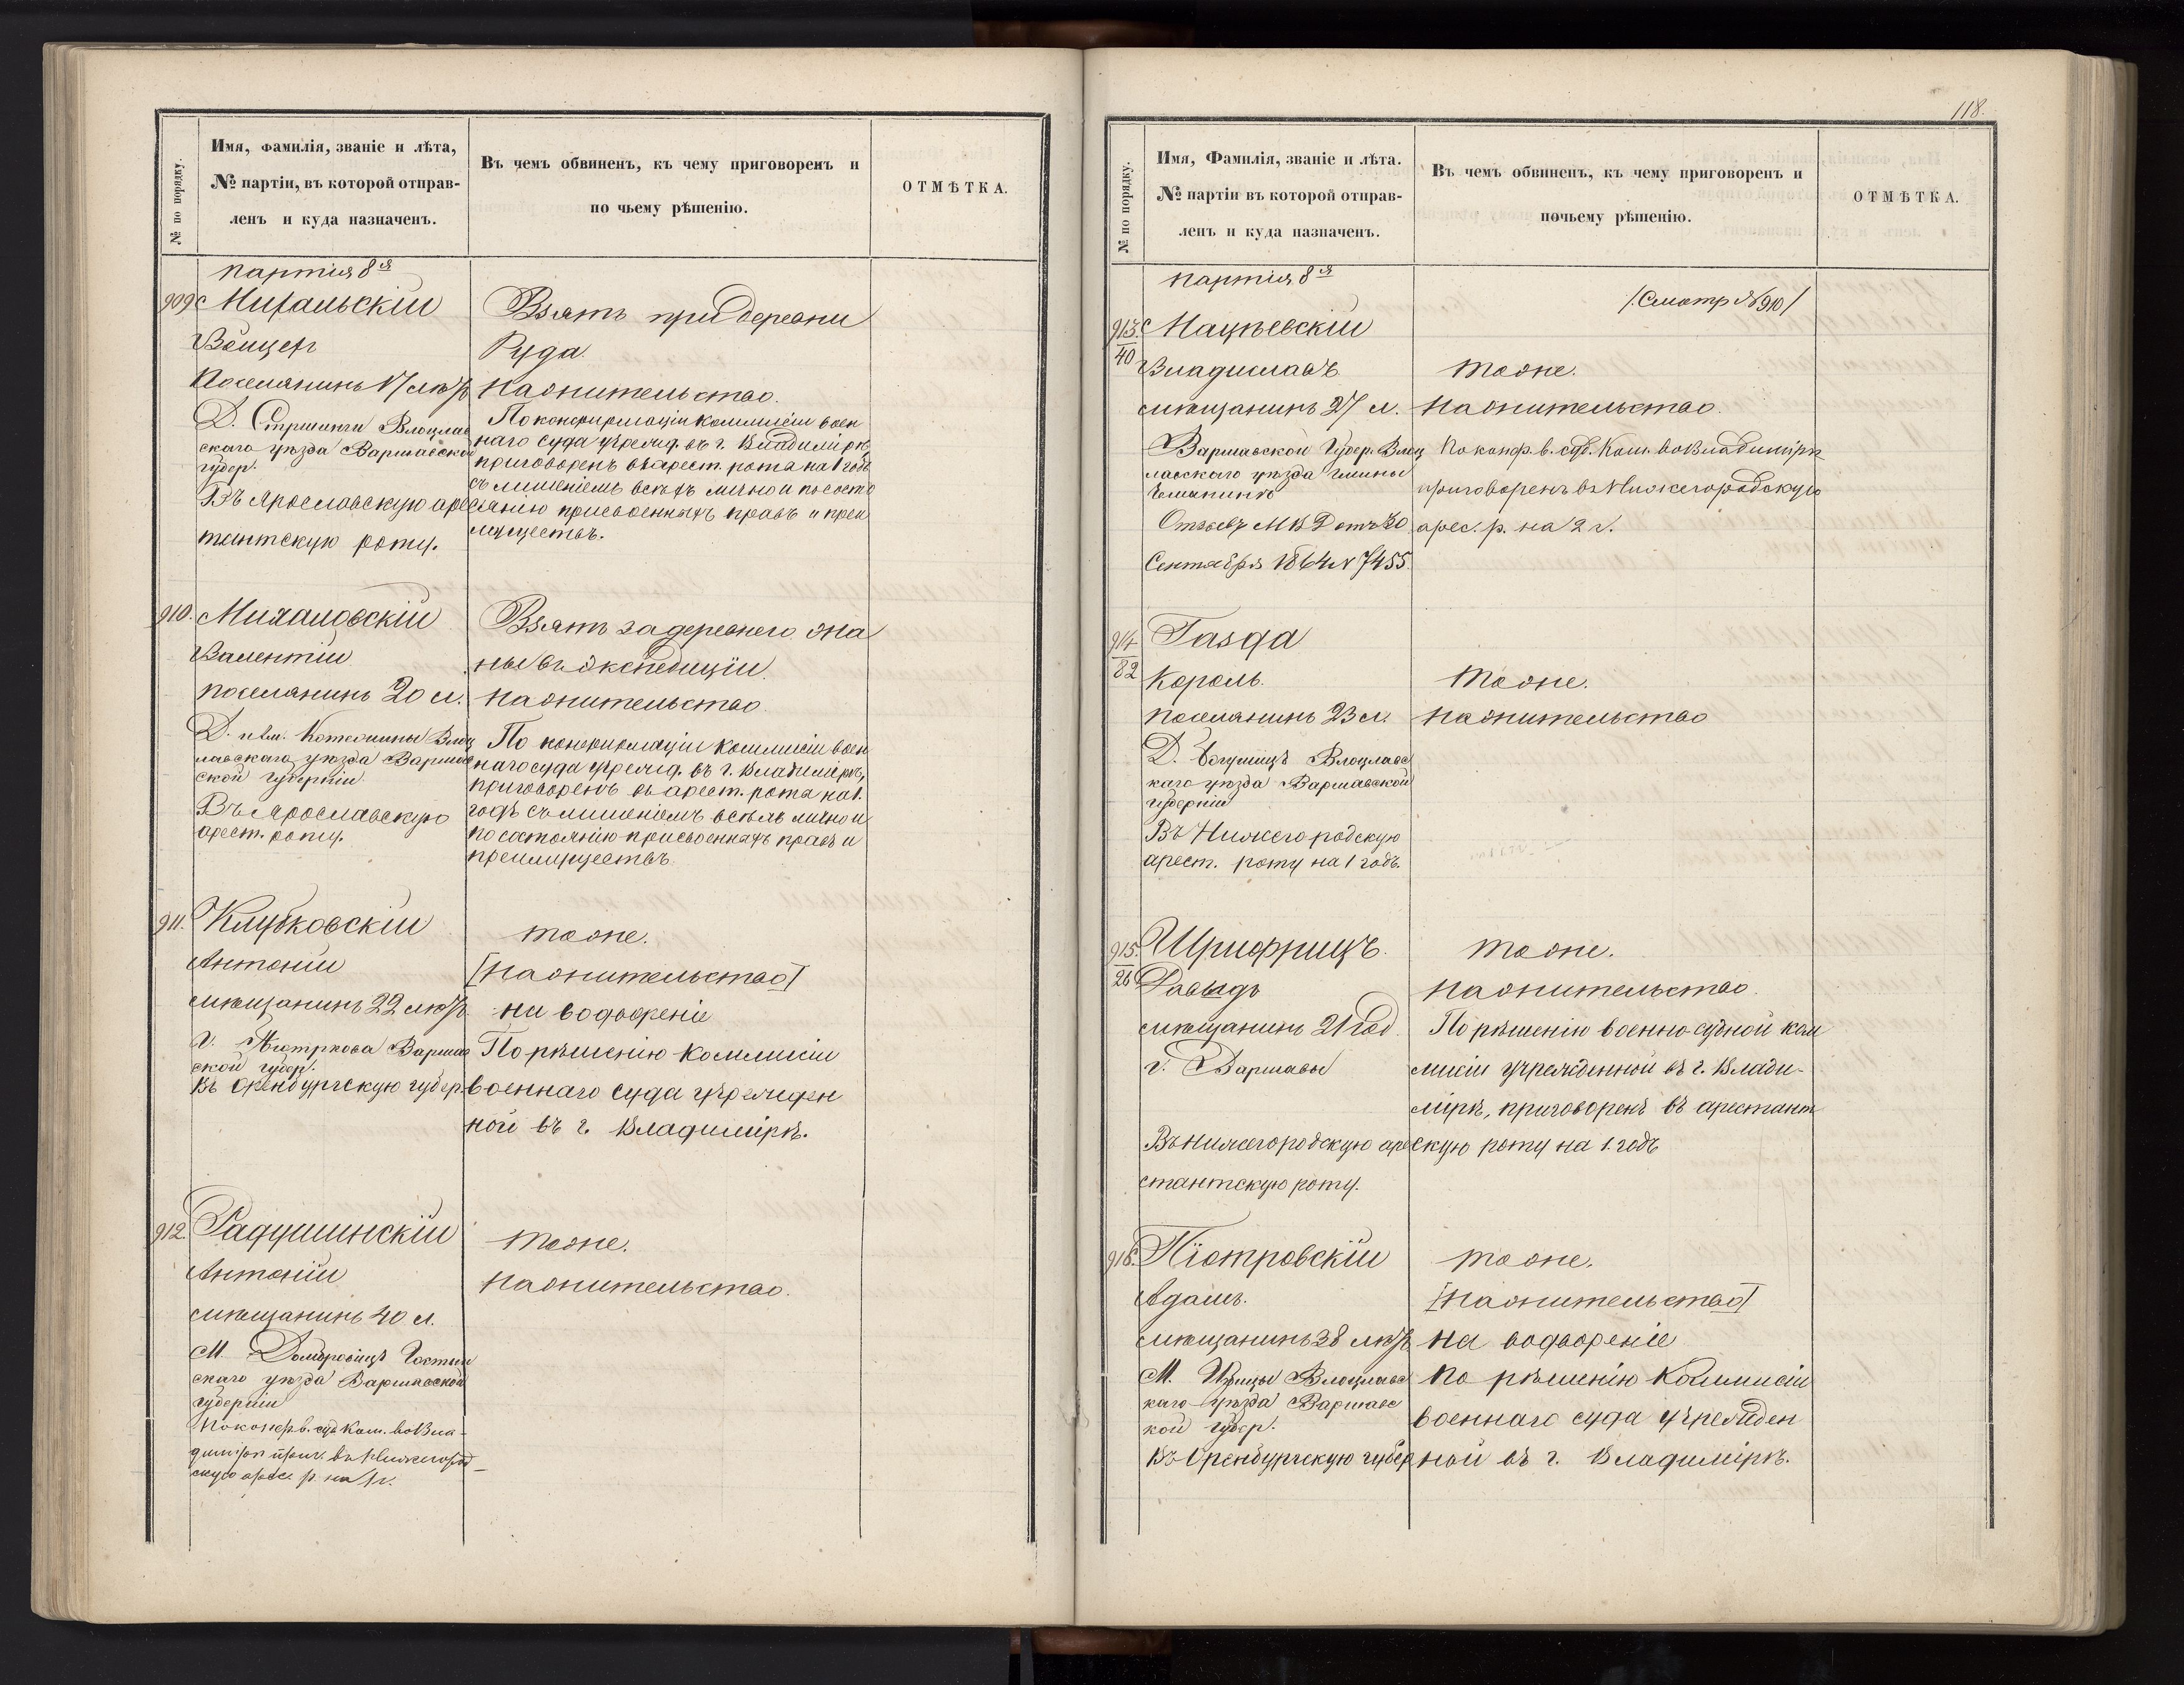 № по порядку.
Имя, фамилія, званіе и лѣта,
№ партіи, въ которой отправ-
ленъ и куда назначенъ.
Въ чемъ обвиненъ, къ чему приговоренъ и
по чьему рѣшенію.
ОТМѢТКА.
партія 8я
909
Михальскій
Войцех
Поселянинъ 17 лѣтъ
Влоцлав
скаго уѣзда Варшавской
губер.
Въ Ярославскую арес
тантскую роту.
Взятъ при деревни
Руда
на жительство.
По конфирмаціи коммисіи воен
наго суда учрежд. въ г. Владимірѣ,
приговоренъ въ арест. рота на 1 годъ
съ лишеніемъ всѣхъ лично и по состо
янію присвоенныхъ правъ и преи
муществъ.
910.
Михаловскій
Валентій
поселянинъ 20 л.
Влоц
лавскаго уѣзда Варшав
ской губерніи
Въ Ярославскую
арест. роту.
Взятъ за деревнею
въ экспедиціи.
на жительство
По конфирмаціи коммисіи воен
наго суда учрежд. въ г. Владимірѣ,
приговоренъ въ арест. рота на 1.
годъ съ лишеніемъ всѣхъ лично и
по состоянію присвоенныхъ правъ и
преимуществъ.
911.
Клубковскій
Антоній
мѣщанинъ 22 лѣтъ
Варшав
ской губер.
Въ Оренбургскую губер.
тоже.
[на жительство]
на водвореніе
По рѣшенію Коммисіи
военнаго суда учрежден
ной въ г. Владимірѣ.
912.
Радушинскій
Антоній
мѣщанинъ 40 л.
М. Гостын
скаго уѣзда Варшавской
губерніи
По конф. в. суд. Ком. во Вла-
димірѣ приг. въ Нижегород-
скую арес. р. на 1 г.
тоже.
на жительство.
118.
№ по порядку.
Имя, Фамилія, званіе и лѣта.
№ партіи въ которой отправ-
ленъ и куда назначенъ.
Въ чемъ обвиненъ, къ чему приговоренъ и
почьему рѣшенію.
ОТМѢТКА.
партія 8я
/Смотр №910/
913.
40
Мацѣевскій
Владиславъ
мѣщанинъ 27 л.
Варшавской Губер. Влоц
лавскаго уѣзда гмины
Отзывъ МВД отъ 30
Сентября 1864 N 7455.
тоже.
на жительство.
По конф. в. суд. Ком. во Владимірѣ
приговоренъ въ Нижегородскую
арес. р. на 2 г.
914
82
Газда
Кароль.
поселянинъ 23 л.
Влоцлавс
каго уѣзда Варшавской
губерніи
Въ Нижегородскую
арест. роту на 1 годъ.
тоже.
на жительство
915.
26
Шрифрицъ.
Давыдъ
мѣщанинъ 21 год
г. Варшавы
Въ Нижегородскую аре
стантскую роту.
тоже.
на жительство.
По рѣшенію военно-судной ком
мисіи учрежденной въ г. Влади-
мірѣ, приговоренъ въ арестант
скую роту на 1. годъ
916.
Піотровскій
Адамъ.
мѣщанинъ 38 лѣтъ
М. Избицы Влоцлавс
каго уѣзда Варшавс
кой губер.
Въ Оренбургскую губер
тоже.
[на жительство]
на водвореніе
По рѣшенію Коммисіи
военнаго суда учрежден
ной въ г. Владимірѣ.